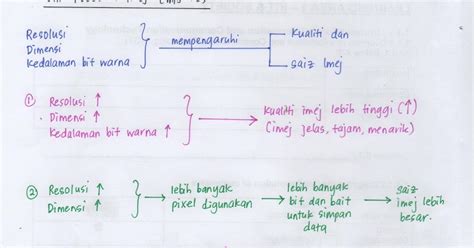 Resolusi
Dimensi
Kedalaman bit warna
mempengaruhi
Kualiti dan
saiz Imej
① Resolusi ↑
Dimensi ↑
Kedalaman bit warna ↑
Kualiti imej lebih tinggi (↑)
(imej jelas, tajam, menarik)
② Resolusi ↑
Dimensi ↑
lebih banyak
pixel digunakan
lebih banyak
bit dan bait
untuk simpan
data
saiz
imej lebih
besar.